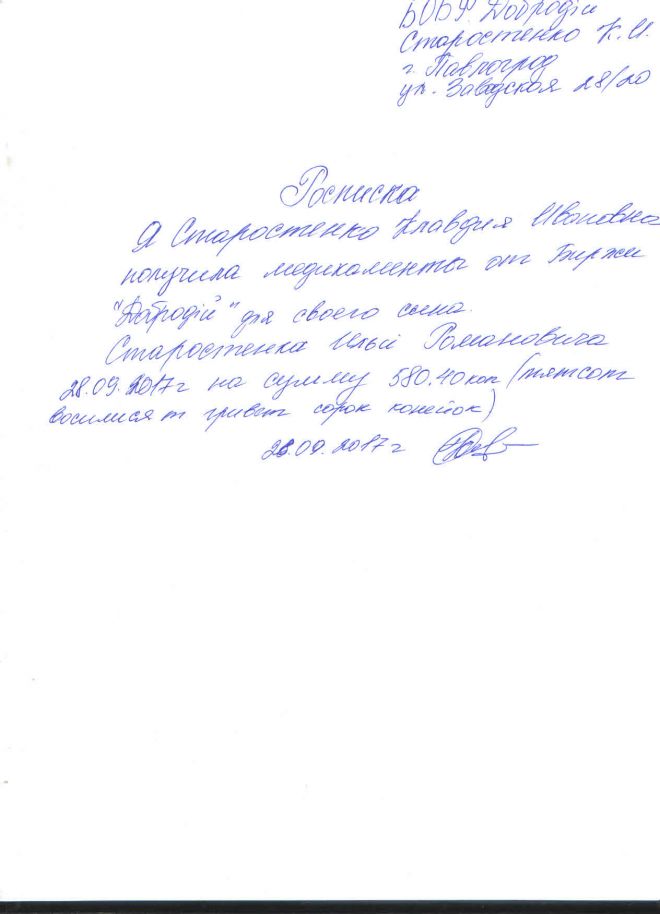 БОБФ. Добродій
Старостенко К.И.
г. Павлоград
ул. Заводская 28/20
Росписка
Я Старостенко Клавдия Ивановна
получила медикаменты от Биржи
"Добродій" для своего сына.
Старостенка Ильи Романовича
28.09.2017г на сумму 580.40коп (пятсот
восимисят гривен сорок копеек)
28.09.2017г